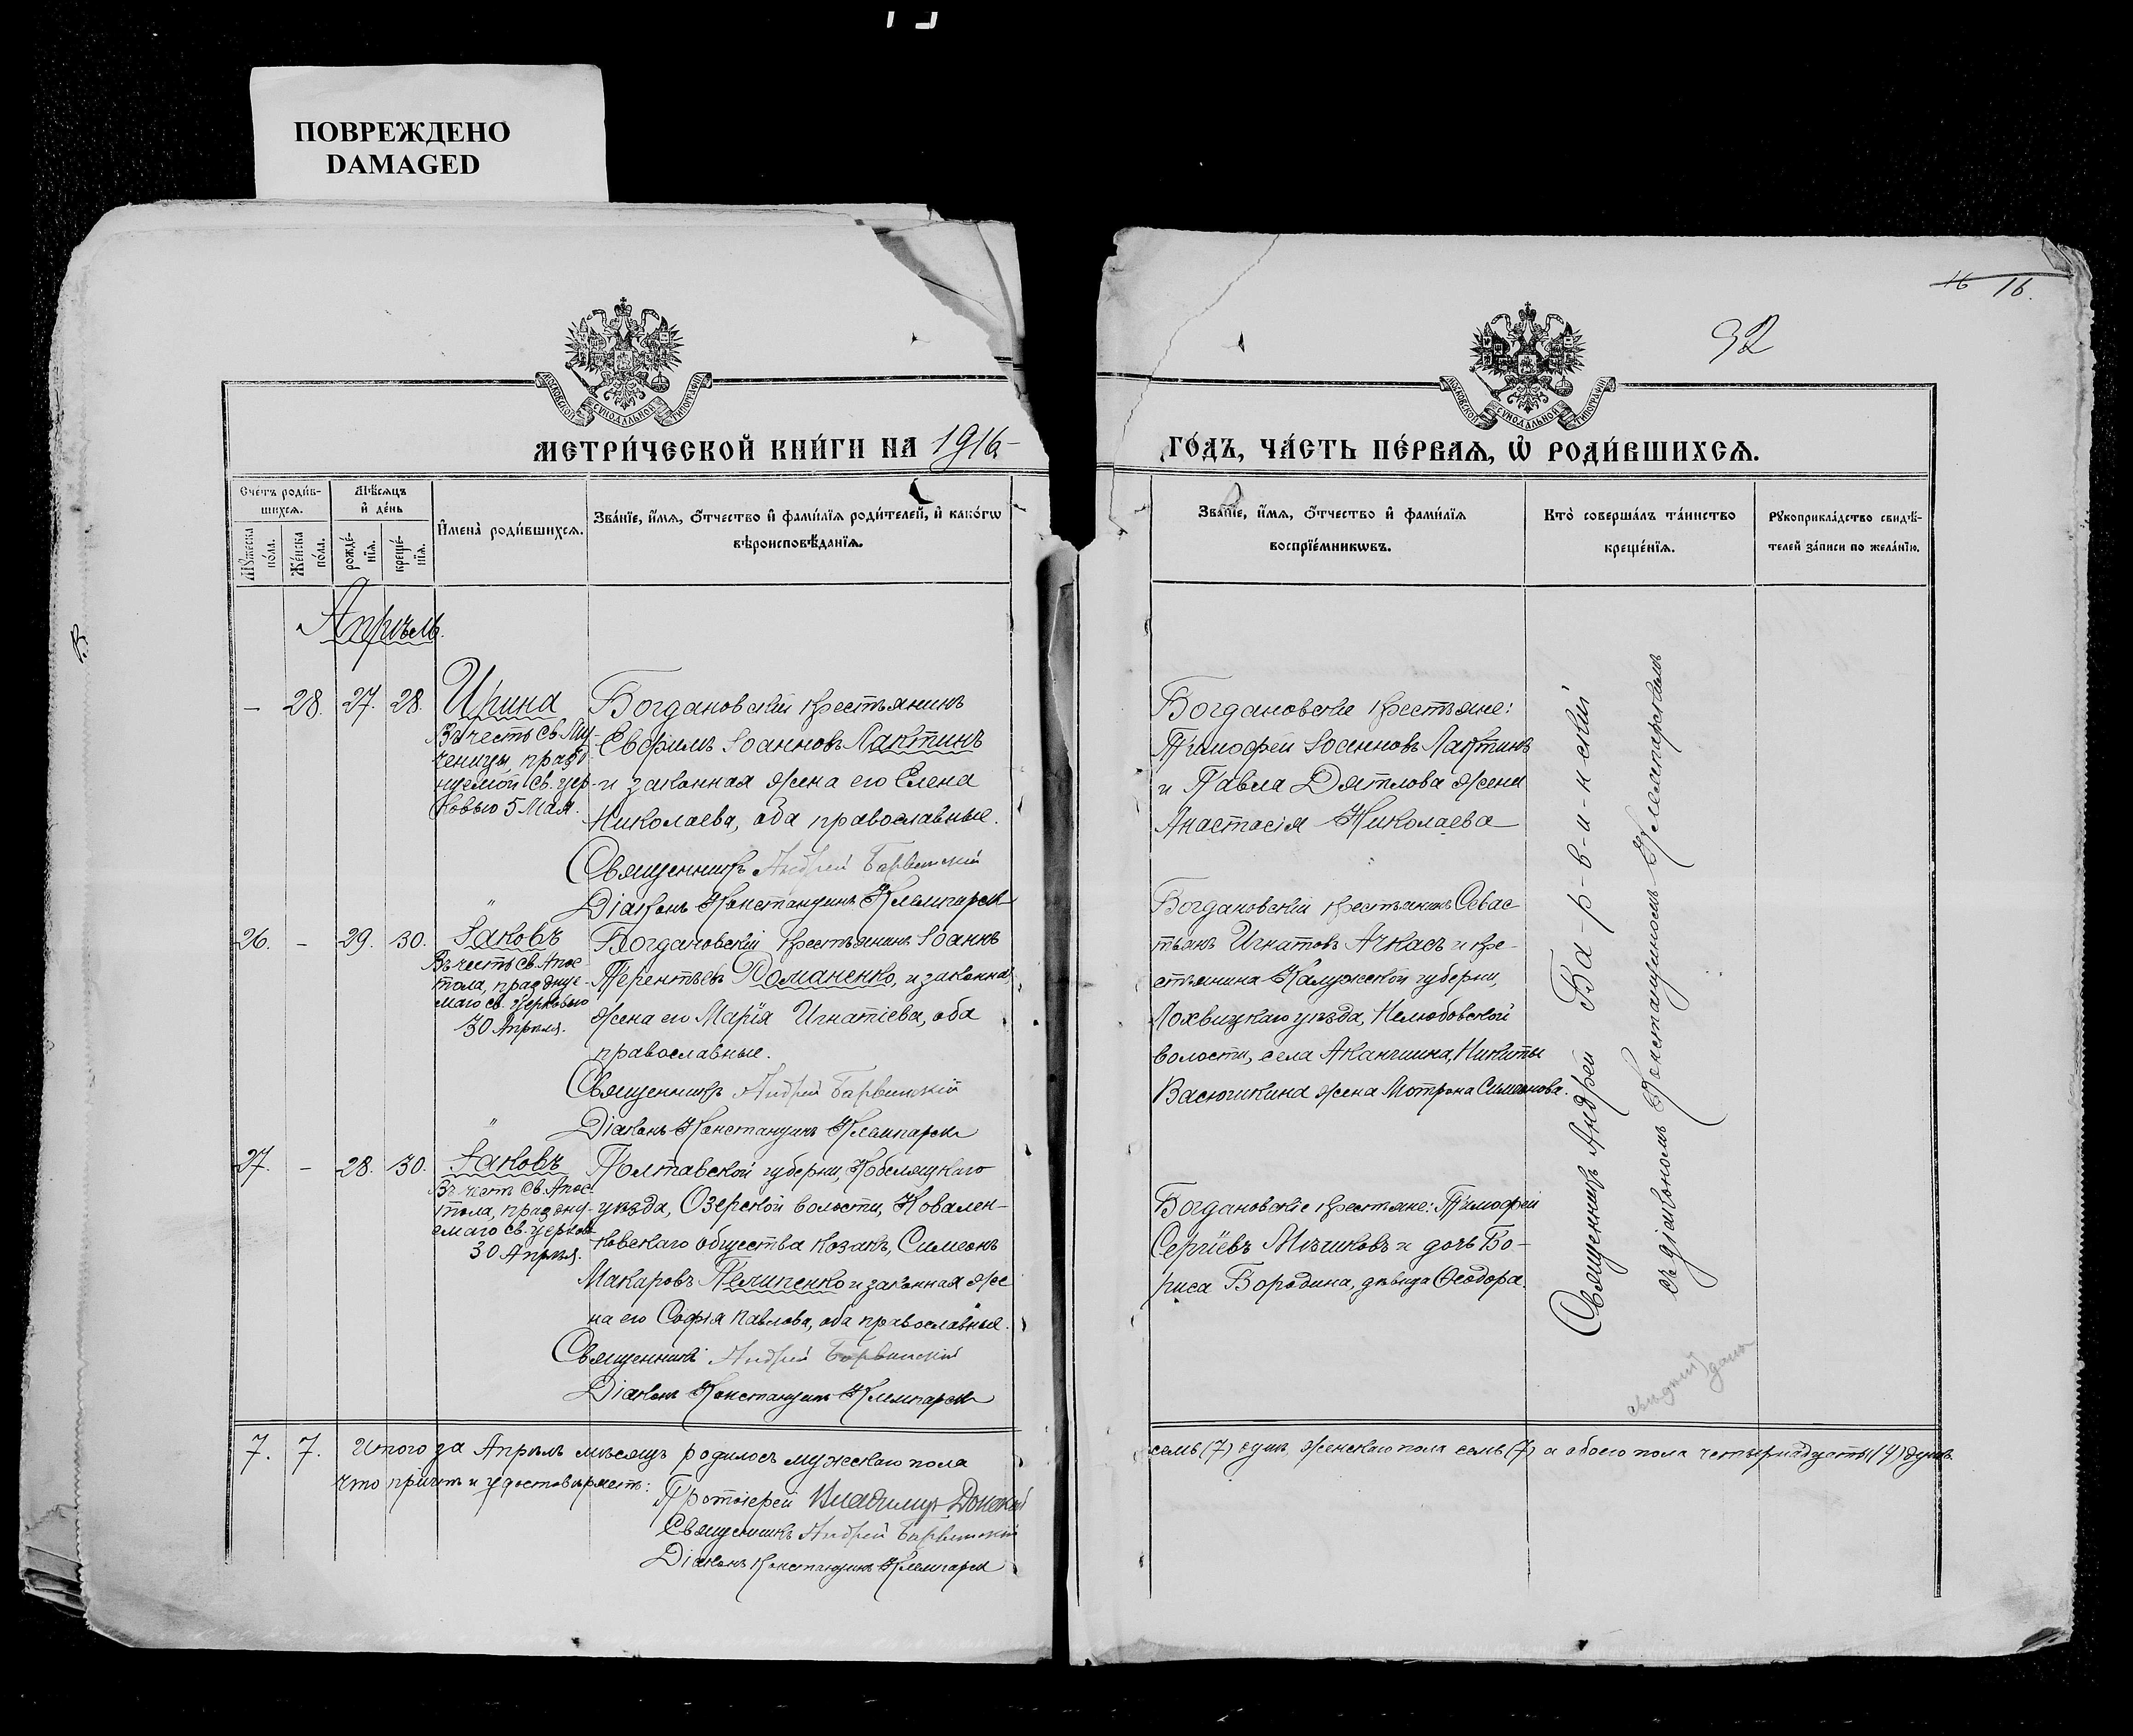 ПОВРЕЖДЕНО
DAMAGED
16 16.
92
МОСКОВСКОЙ СУНОДАЛЬНОЙ ТИПОГРАФІИ
МОСКОВСКОЙ СУНОДАЛЬНОЙ ТИПОГРАФІИ
МЕТРИ́ЧЕСКОЙ КНИ́ГИ НА 1916
ГО́ДЪ, ЧА́СТЬ ПЕ́РВАЯ, Ѡ҆ РОДИ́ВШИХСѦ.
Счетъ роди́в-
шихсѧ.
Мѣ́сяцъ
и҆ де́нь
Мꙋ́жеска
по́ла.
Же́нска
по́ла.
рожде́-
нїѧ.
креще́-
нїѧ.
И҆мена̀ роди́вшихсѧ.
Зва́нїе, и҆́мѧ, ѻ҆́тчество и҆ фами́лїѧ роди́телей, и҆ како́гѡ
вѣроисповѣ́данїѧ.
Зва́нїе, и҆́мѧ, ѻ҆́тчество и҆ фами́лїѧ
воспрїе́мникѡвъ.
Кто̀ соверша́лъ та́инство
креще́нїѧ.
Рꙋкоприкла́дство свидѣ́-
телей за́писи по жела́нїю.
Апрѣль.
– 28. 27. 28. Ирина
Въ честь Св. Му-
ченицы, празд-
нуемой Св. Цер-
ковью 5 Мая.
Богдановскій крестьянинъ
Евфимъ Іоанновъ Лактинъ
и законная жена его Елена
Николаева, оба православные.
Священникъ Андрей Барвинскій
Діаконъ Константинъ Клемпарск
Богдановскіе крестьяне:
Тимофей Іоанновъ Лактинъ
и Павла Дятлова жена
Анастасія Николаева
26. – 29. 30. Іаковъ
Въ честь Св. Апос-
тола, празднуе-
маго св. Церковью
30 Апрѣля.
Богдановскій крестьянинъ Іоаннъ
Терентьевъ Романенко, и законная
жена его Марія Игнатіева, оба
православные.
Священникъ Андрей Барвинскій
Діаконъ Константинъ Клемпарск
Богдановскій крестьянинъ Севас
тьянъ Игнатовъ Ачкасъ и кре-
стьянина Калужской губерніи,
Лохвицкаго уѣзда, Нелюбовской
волости, села Аканчина, Никиты
Васючкина жена Мотрона Симеонова.
27. – 28. 30. Іаковъ
Въ честь Св. Апос-
тола, праздну-
емаго Св. Церков
30 Апрѣля.
Полтавской губерніи, Кобеляцкаго
уѣзда, Озерской волости, Ковален-
ковскаго общества козакъ, Симеонъ
Макаровъ Пелипенко и законная же
на его Софія Павлова, оба православные.
Священникъ Андрей Барвинскій
Діаконъ Константинъ Клемпарск
Богдановскіе крестьяне: Тимофей
Сергіевъ Мѣчиковъ и дочь Бо-
риса Бородина, дѣвица Ѳеодора.
Священникъ Андрей Ба-р-в-и-н-скій
съ діакономъ Константиномъ Клемпарскимъ
7. 7. Итого за Апрѣль мѣсяцъ родилось мужескаго пола
семь (7) душъ, женскаго пола семь (7) а обоего пола четырнадцать (14) душъ.
Что причтъ и удостовѣряетъ:
Протоіерей Владимиръ Донской
Священникъ Андрей Барвинскій
Діаконъ Константинъ Клемпарск